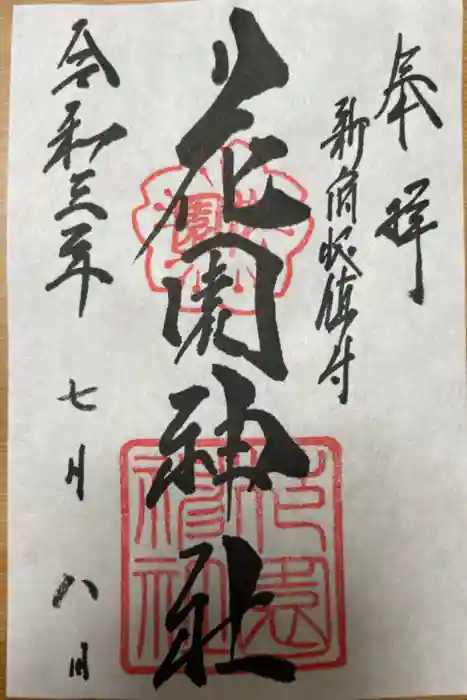 奉拝
新宿総鎮守
花園神社
令和三年七月八日
花園
花園神社